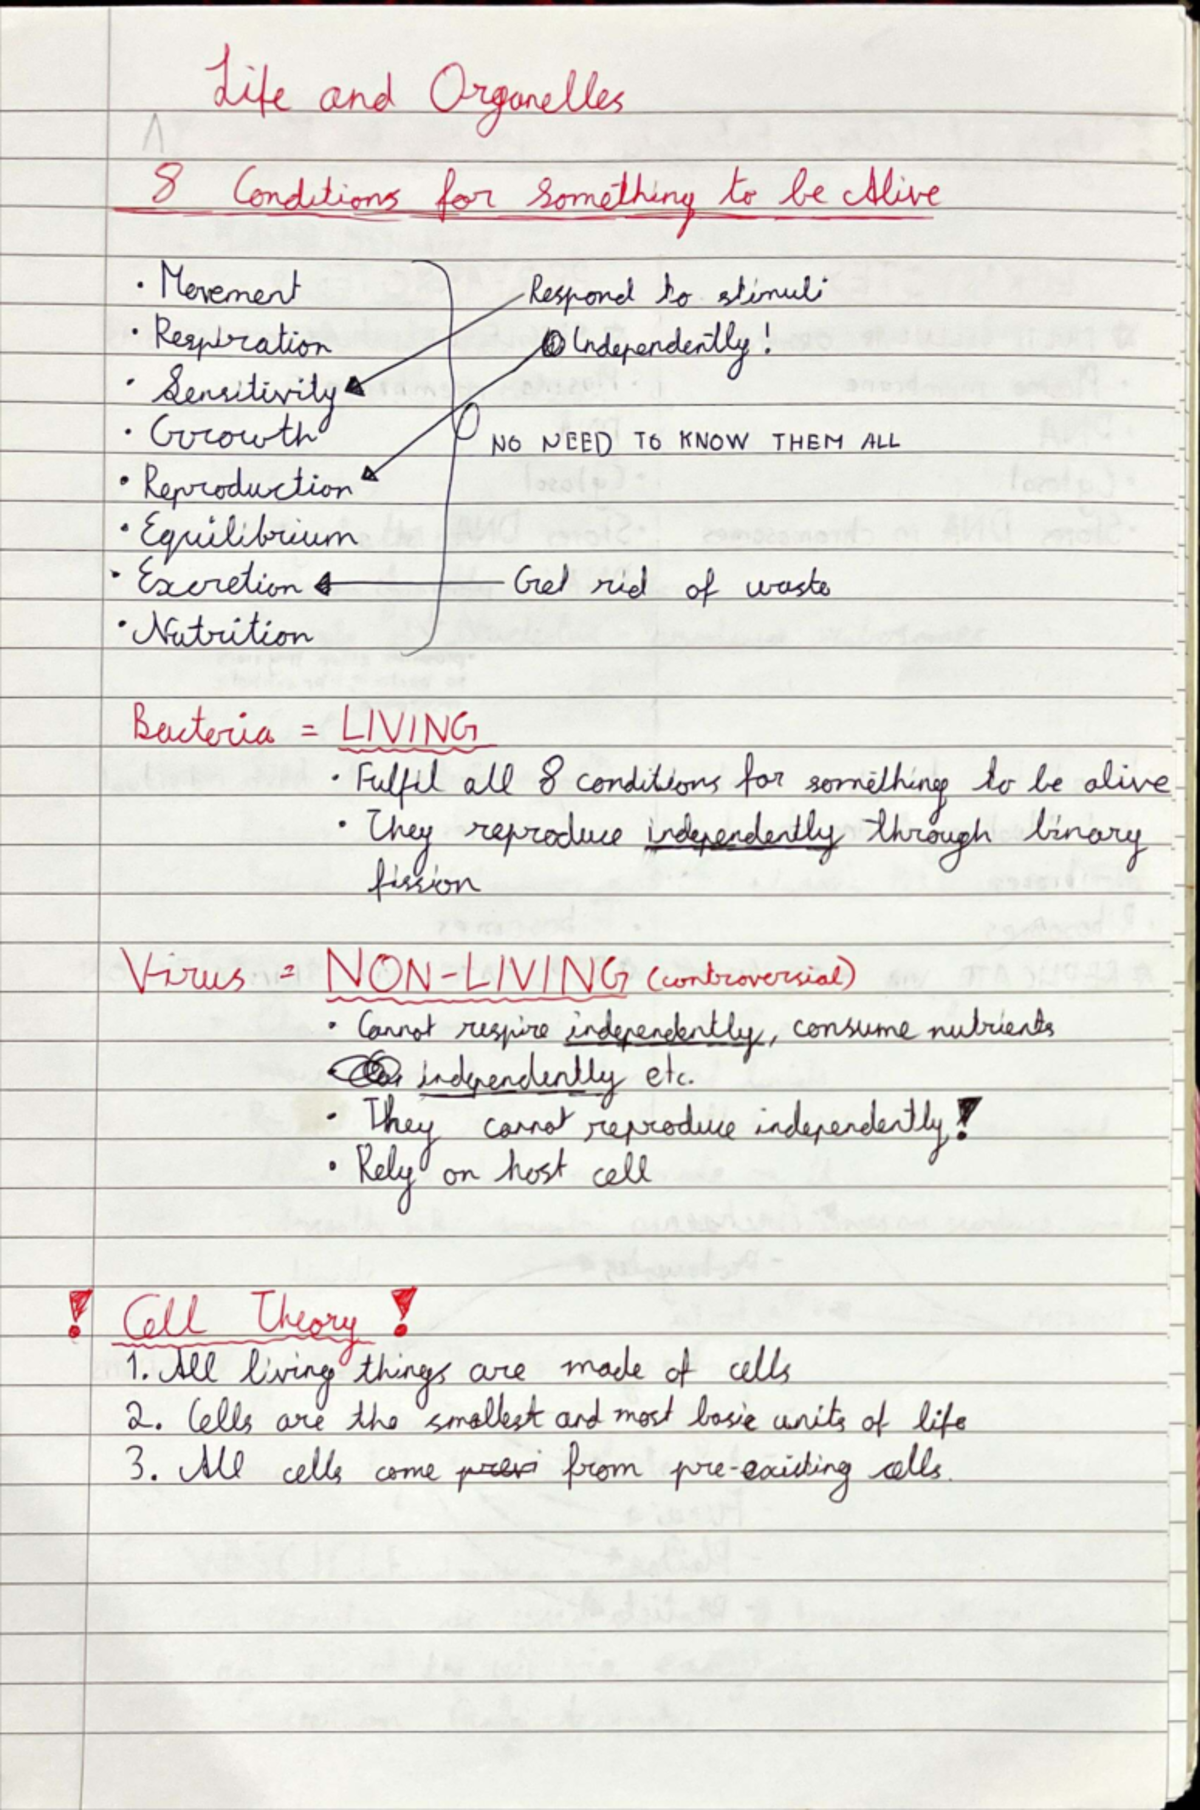 Life and Organelles
8 Conditions for something to be Alive
· Movement
Respond to stimuli
· Respiration
Independently!
· Sensitivity
· Growth
NO NEED TO KNOW THEM ALL
· Reproduction
· Equilibrium
· Excretion
Get rid of waste
· Nutrition
Bacteria = LIVING
· Fulfil all 8 conditions for something to be alive
· They reproduce independently through binary
fission
Virus = NON-LIVING (controversial)
· Cannot respire independently, consume nutrients
independently etc.
· They cannot reproduce independently!
· Rely on host cell
! Cell Theory !
1. All living things are made of cells
2. Cells are the smallest and most basic units of life
3. All cells come from pre-existing cells.